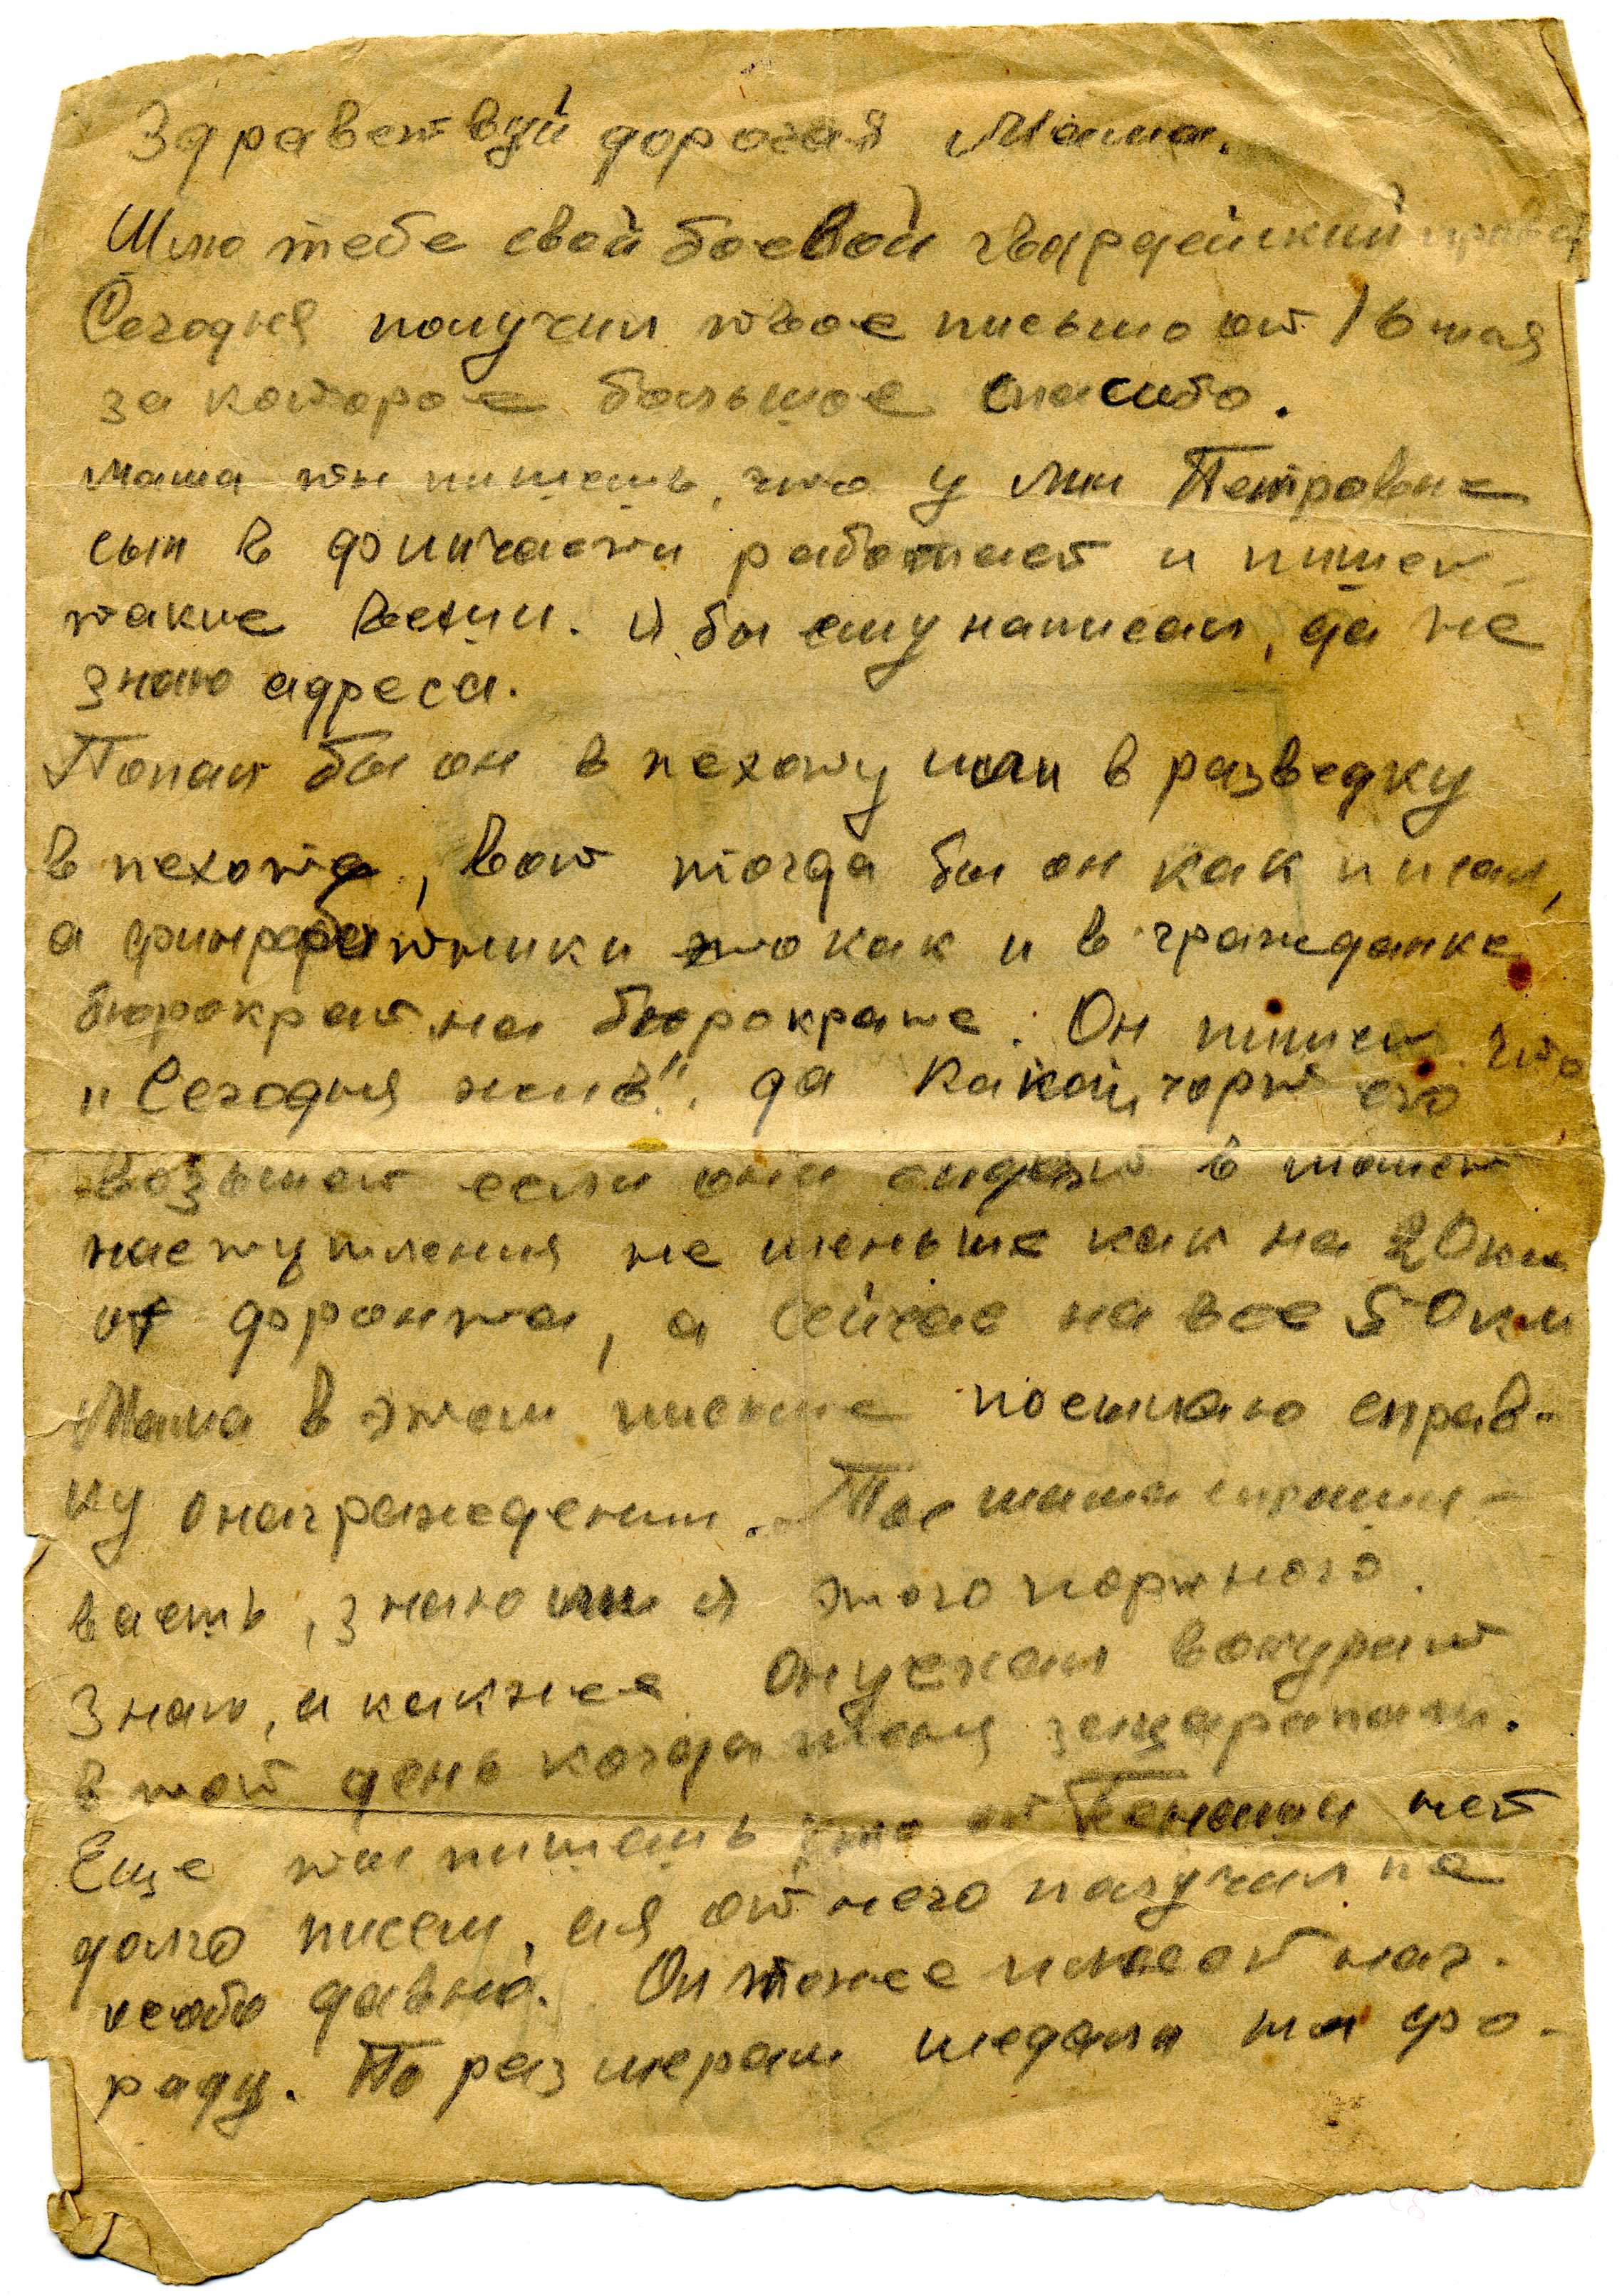 Здравствуй дорогая Мама.
Шлю тебе свой боевой гвардейский привет
Сегодня получил твое письмо от 16 мая
за которое большое спасибо.
мама ты пишешь, что у Петровны
сын в финчасти работает и пишет
такие вещи. Я бы ему написал, да не
знаю адреса.
Попал бы он в пехоту или в разведку
в пехоте, вот тогда бы он как писал,
а финработники это как и в гражданке
бюрократ на бюрократе. Он пишет что
"Сегодня жив", да какой чорт его
возьмет если они сидят в
наступления не меньше как на 20 км
от фронта, а сейчас на все 50 км
Мама в этом письме посылаю справ-
ку о награждении. Ты мама спраши-
ваешь, знаю ли я этого
Знаю, а как же он уехал вакурат
в тот день когда меня зацарапали.
Еще ты пишешь что от нет
долго писем, а я от него получил не
особо давно. Он тоже имеет наг-
раду. По размерам медали на фо-